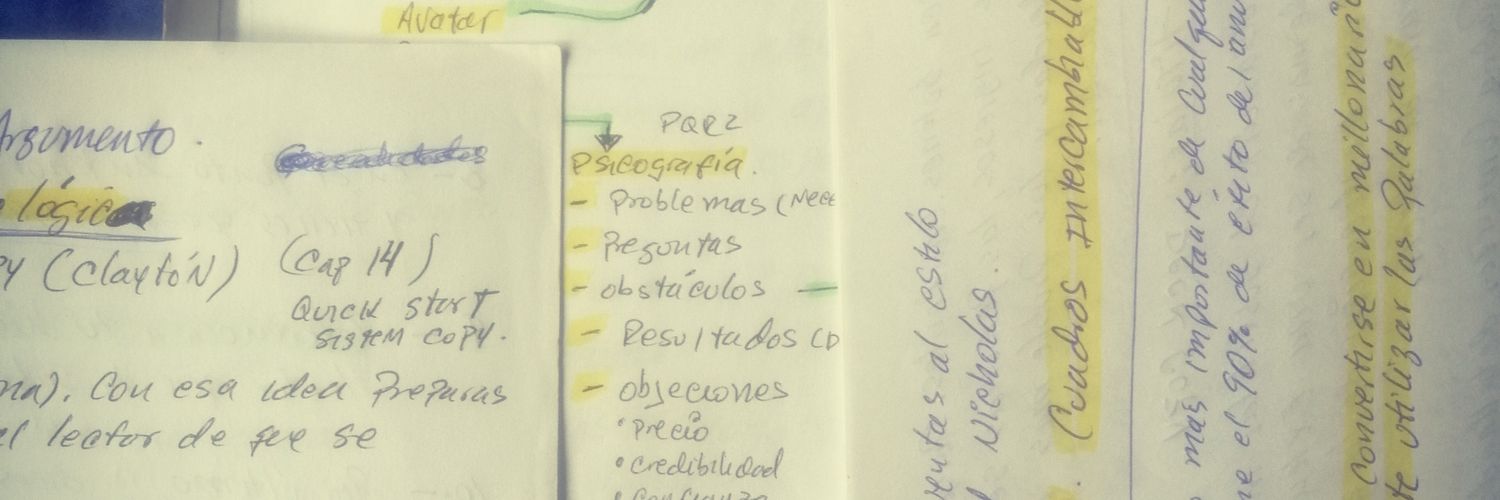 Avatar
Argumento.
lógica
(Clayton) (Cap 14)
Quick start
sistem copy.
Con esa idea Preparas
lector de que se
PQR2
Psicografía.
- Problemas (Nece
- Preguntas
- obstáculos
- Resultados (D
- objeciones
• Precio
• credibilidad
• confianza
al estilo
Nicholas.
Cuadros Intercambiabl
mas importante de cualqu
el 90% de éxito del anu
Convertirse en millonari
utilizar las Palabras